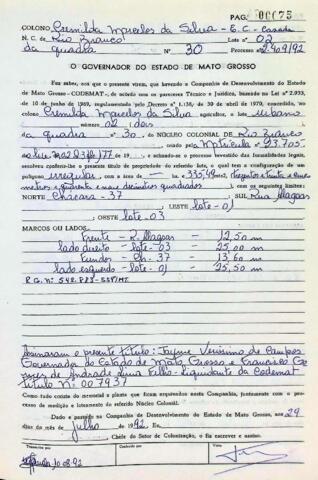 PAG: 00075
COLONO Cremilda Macedos da Silva - E.C. Casada
N. C. de Rio Branco Lote nº 02
da quadra Nº 30 Processo nº 2.909/92
O GOVERNADOR DO ESTADO DE MATO GROSSO
Faz saber, aos que o presente virem, que havendo a Companhia de Desenvolvimento do Estado
de Mato Grosso - CODEMAT-, de acordo com os pareceres Técnico e Jurídico, baseada na Lei nº 2.933,
de 10 de junho de 1969, regulamentada pelo Decreto n. 1.138, de 30 de abril de 1970, concedido, no
Estado, ao colono Cremilda Macedos da Silva agricultor, lote urbano
número 02 (dois)
da quadra Nº 30, do NÚCLEO COLONIAL DE Rio Branco
criado pela Matrícula nº 23.705
de 19 , e achando-se o processo investido das formalidades legais,
resolveu conferir-lhe o presente título de propriedade do referido lote, o qual tem a configuração de um
polígono irregular com a área de ha - 335,49 m² (trezentos e trinta e cinco
metros e quarenta e nove decímetros quadrados), com os seguintes limites:
NORTE Chácara - 37 SUL Rua Alagoas
LESTE lote - 01
; OESTE lote - 03
MARCOS OU LADOS:
Frente - R. Alagoas - 12,50 m
lado direito - lote - 03 - 25,00 m
Fundos - Ch. 37 - 13,60 m
lado esquerdo - lote - 01 - 25,50 m
Assinaram o presente título: Jayme Veríssimo de Campos
Governador do Estado de Mato Grosso e Francisco Go
mes de Andrade Lima Filho - Liquidante da Codemat
título Nº 007937
Tudo como consta do memorial e planta que ficam arquivados nesta Companhia, juntamente com o
processo de medição e loteamento do referido Núcleo Colonial.
Dado e passado na Companhia de Desenvolvimento do Estado de Mato Grosso, aos 29
dias do mês de julho de 1992. Eu,
Chefe do Setor de Colonização, o fiz escrever e assino.
Transcrito por Visto
10-08-92